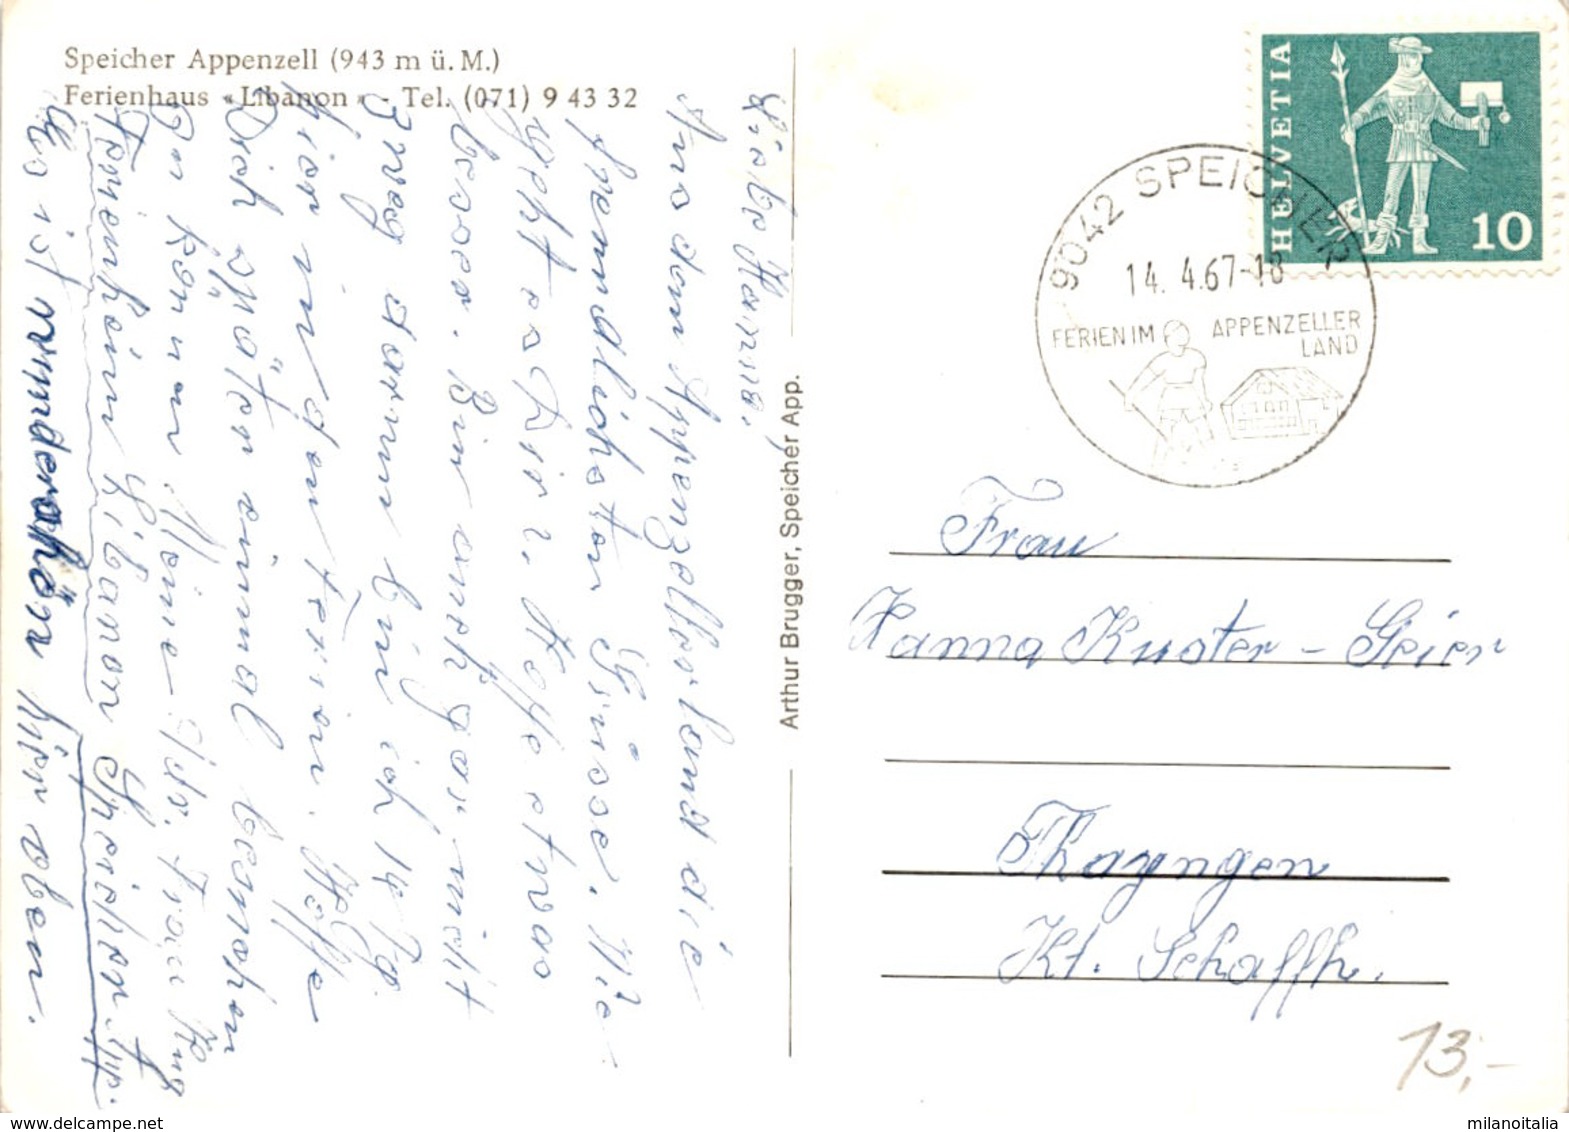 Speicher Appenzell (943 m ü. M.)
Ferienhaus «Libanon» - Tel. (071) 9 43 32
Liebe Hanna,
Aus dem Appenzellerland die
freundlichsten Grüsse. Wie
geht es Dir? Hoffe etwas
besser. Bin auch gar nicht
zweg darum bin ich 14 Tg.
hier in den Ferien. Hoffe
Dich später einmal besuchen
zu können. Meine Adr. Frau Kug
Ferienheim Libanon Speicher App.
Es ist wunderschön hier oben.
Arthur Brugger, Speicher App.
HELVETIA
10
9042 SPEICHER
14. 4.67-18
FERIEN IM APPENZELLER
LAND
Frau
Hanna Kuster-Geier
Thayngen
Kt. Schaffh.
13,-
milanoitalia